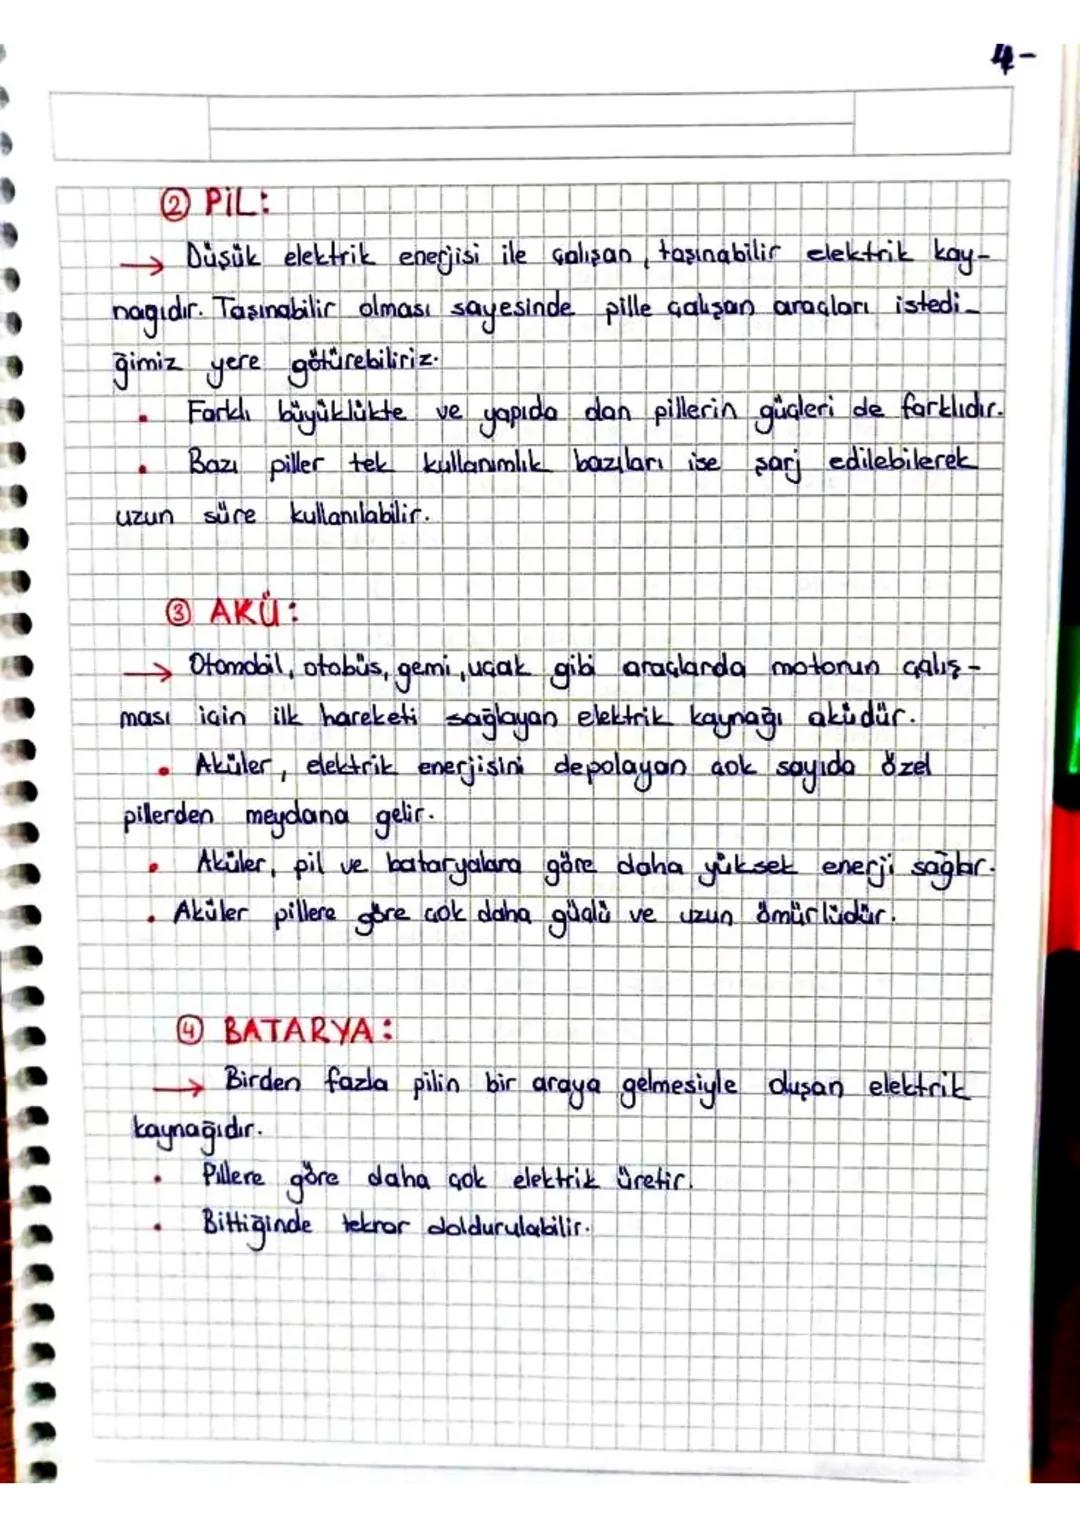 4-
② PİL:
→ Düşük elektrik enerjisi ile çalışan, taşınabilir elektrik kay-
nağıdır. Taşınabilir olması sayesinde pille çalışan araçları istedi-
ğimiz yere götürebiliriz.
• Farklı büyüklükte ve yapıda olan pillerin güçleri de farklıdır.
• Bazı piller tek kullanımlık bazıları ise şarj edilebilerek
uzun süre kullanılabilir.
③ AKÜ:
→ Otomobil, otobüs, gemi, uçak gibi araçlarda motorun çalış-
ması için ilk hareketi sağlayan elektrik kaynağı aküdür.
• Aküler, elektrik enerjisini depolayan çok sayıda özel
pillerden meydana gelir.
• Aküler, pil ve bataryalara göre daha yüksek enerji sağlar.
• Aküler pillere göre çok daha güçlü ve uzun ömürlüdür.
④ BATARYA:
→ Birden fazla pilin bir araya gelmesiyle oluşan elektrik
kaynağıdır.
• Pillere göre daha çok elektrik üretir.
• Bittiğinde tekrar doldurulabilir.